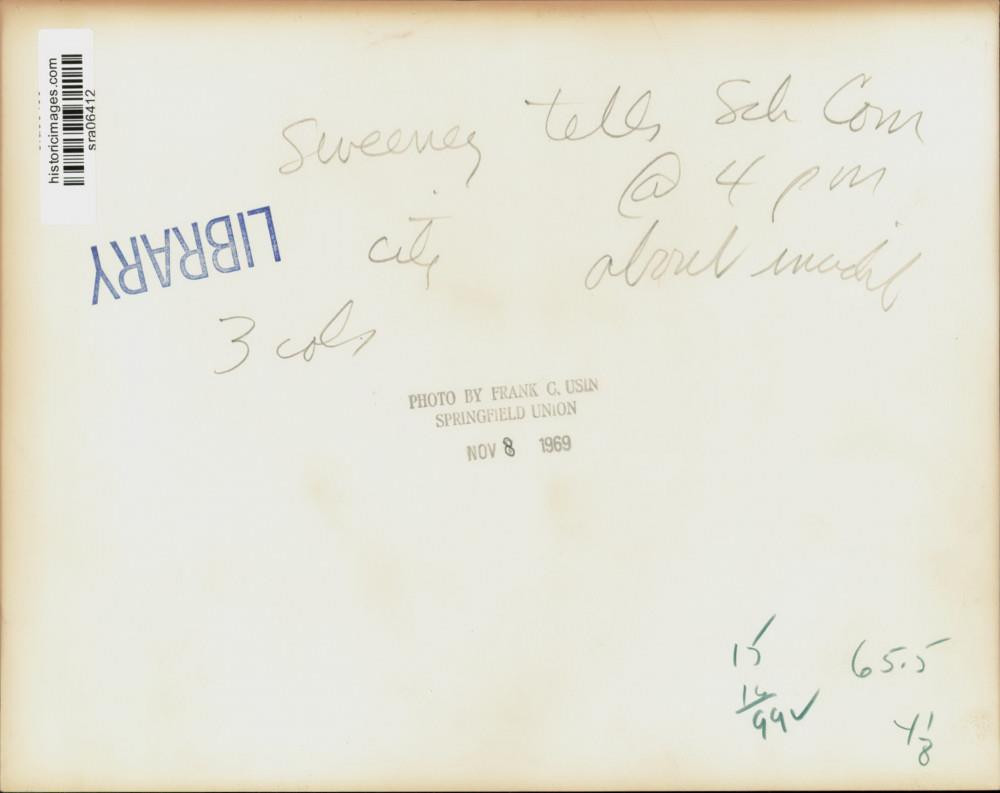 historicimages.com
sra06412
Sweeney tells Sch Com
@ 4 pm
city about
LIBRARY
3 cols
PHOTO BY FRANK C. USIN
SPRINGFIELD UNION
NOV 8 1969
15 65.5
99